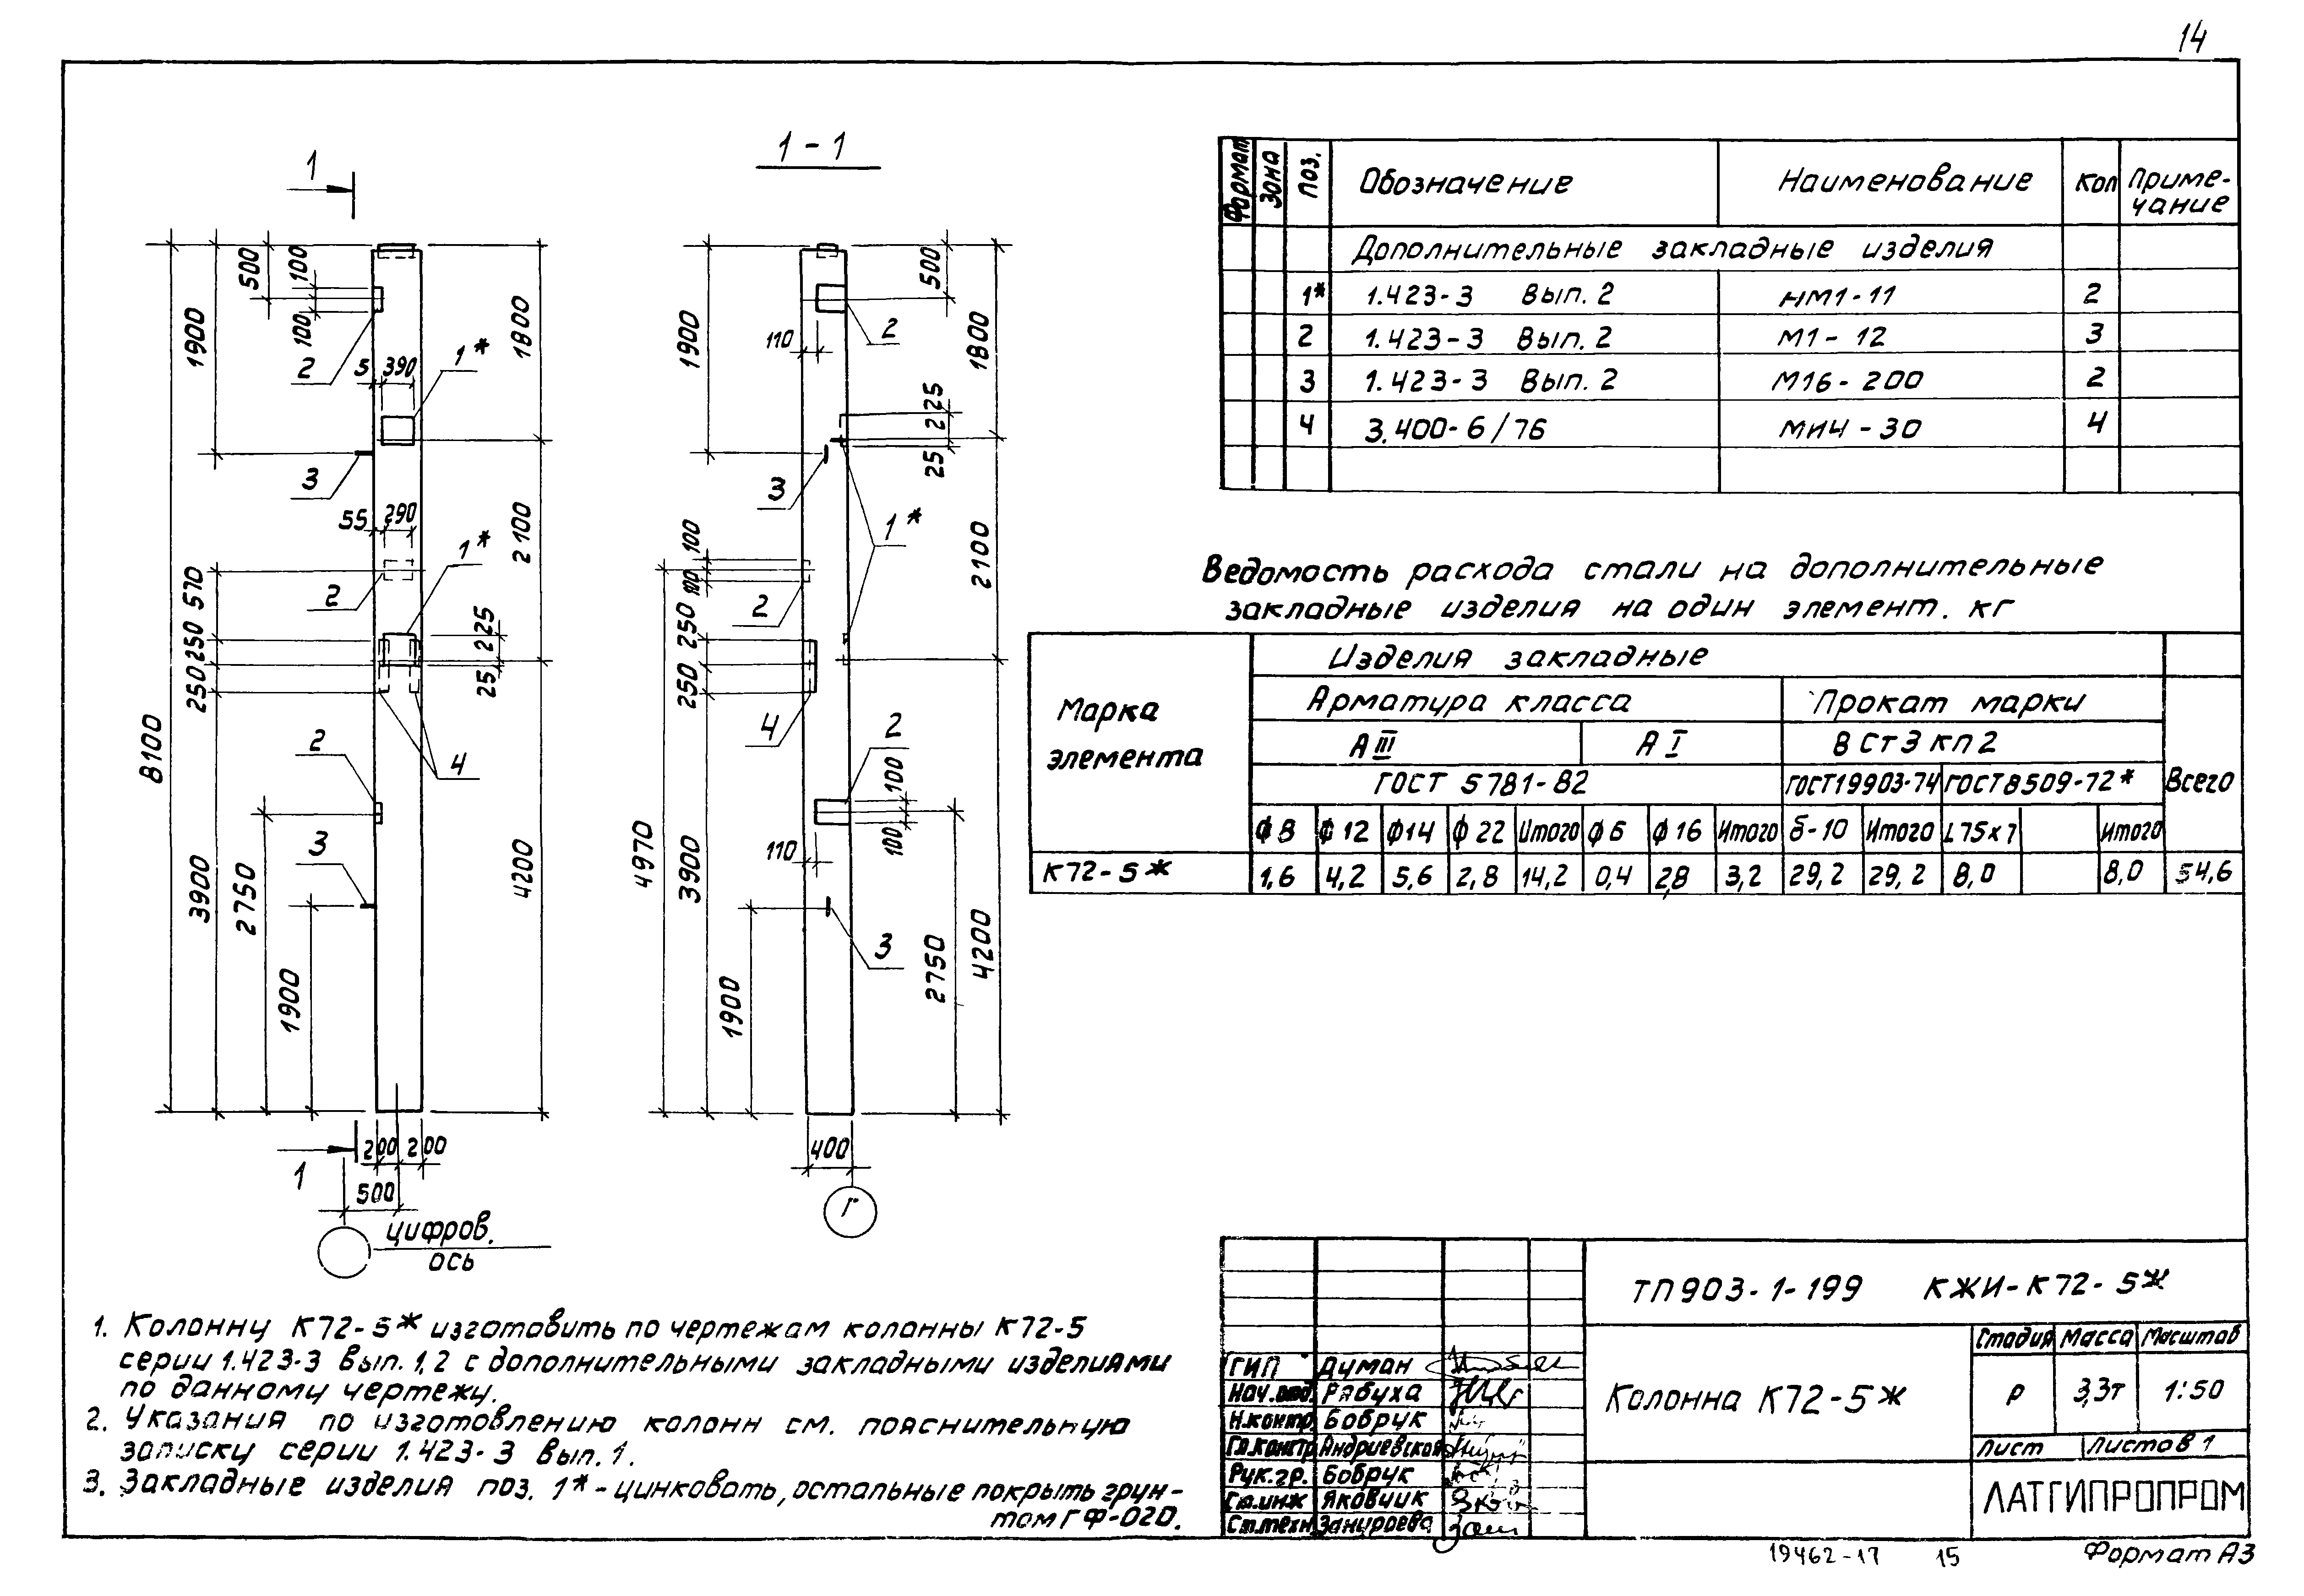 14
1
1 - 1
500
100
100
1900
1800
2
5
390
1*
3
55
290
2100
1*
570
250
250
2
225
25
8100
2
4
3
3900
2750
1900
4200
200
200
1
500
цифров.
ось
500
1900
1800
110
2
225
25
3
1*
2100
100
100
250
250
2
4
2
100
100
110
4970
3900
3
1900
2750
4200
400
Г
Формат Зона Поз. Обозначение Наименование Кол Приме-
чание
Дополнительные закладные изделия
1* 1.423-3 Вып. 2 НМ1-11 2
2 1.423-3 Вып. 2 М1-12 3
3 1.423-3 Вып. 2 М16-200 2
4 3.400-6/76 МИ4-30 4
Ведомость расхода стали на дополнительные
закладные изделия на один элемент. кг
Марка
элемента
Изделия закладные
Арматура класса Прокат марки
А III А I ВСт3кп2
ГОСТ 5781-82 ГОСТ19903-74 ГОСТ8509-72* Всего
ф8 ф12 ф14 ф22 Итого ф6 ф16 Итого δ-10 Итого L75х7 Итого
К72-5ж 1,6 4,2 5,6 2,8 14,2 0,4 2,8 3,2 29,2 29,2 8,0 8,0 54,6
1. Колонну К72-5ж изготовить по чертежам колонны К72-5
серии 1.423-3 вып. 1,2 с дополнительными закладными изделиями
по данному чертежу.
2. Указания по изготовлению колонн см. пояснительную
записку серии 1.423-3 вып. 1.
3. Закладные изделия поз. 1*-цинковать, остальные покрыть грун-
том ГФ-020.
ТП903-1-199 КЖИ-К72-5ж
Колонна К72-5ж
Стадия Масса Масштаб
Р 3,3т 1:50
Лист Листов 1
ЛАТГИПРОПРОМ
ГИП Думан
Нач.отд. Рябуха
Н.контр. Бобрук
Гл.констр. Андриевская
Рук.гр. Бобрук
Ст.инж Яковчик
Ст.техн. Занцроева
19462-17 15
Формат А3